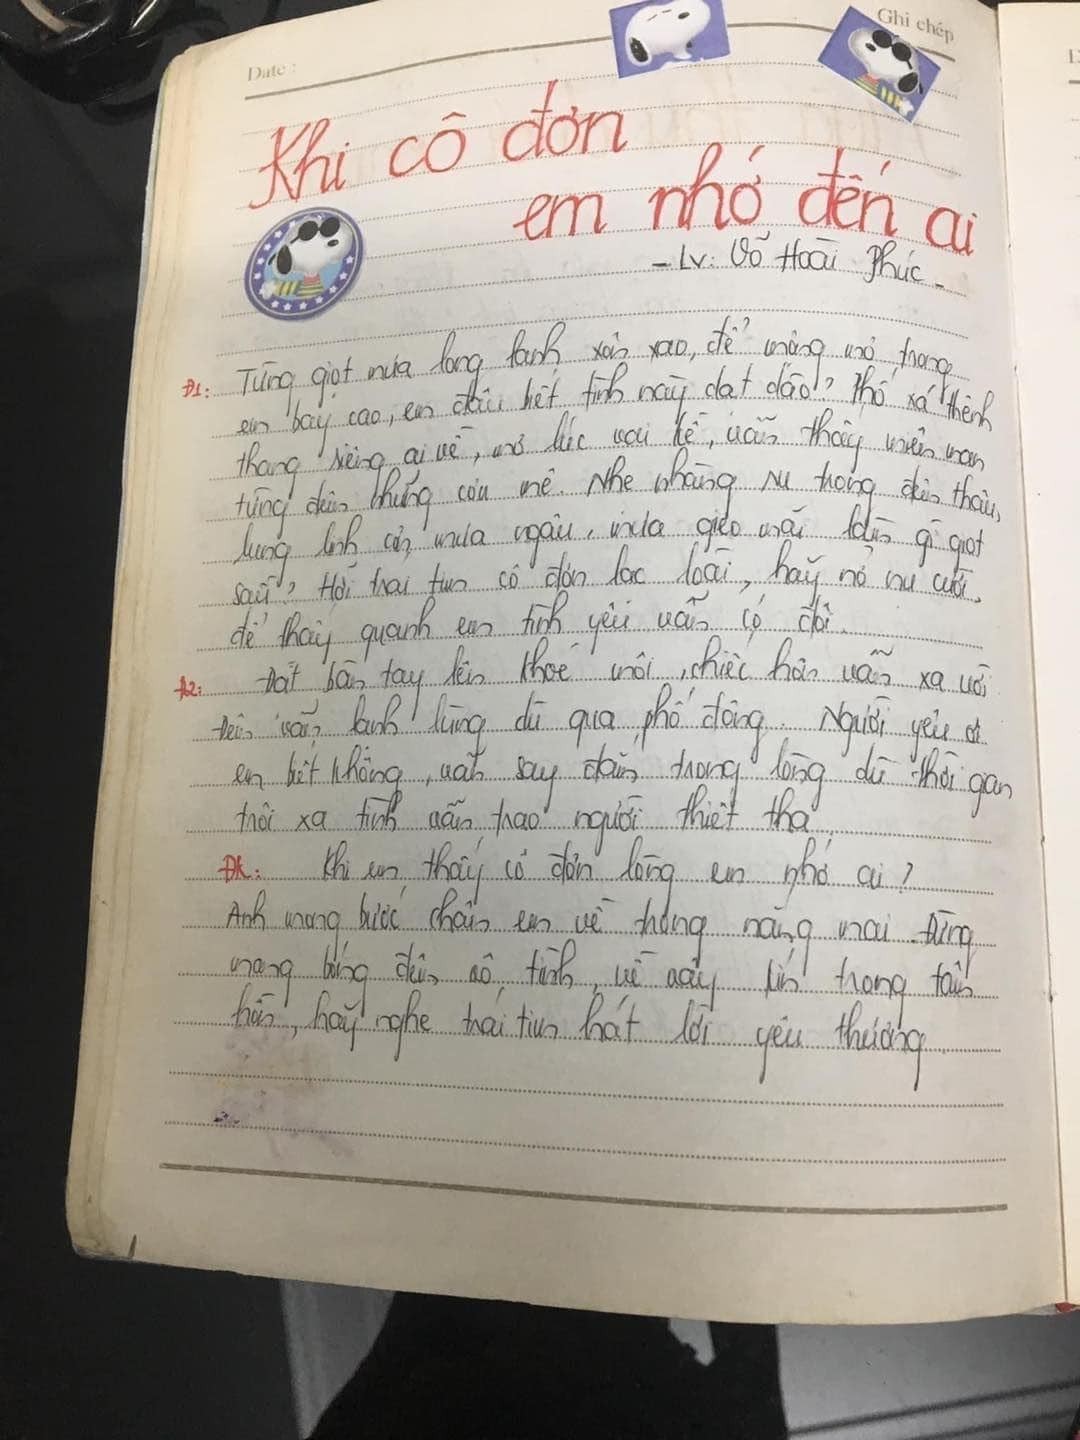 Date :
Ghi chép
Khi cô đơn
em nhớ đến ai
- LV: Võ Hoài Phúc -
Đ1: Từng giọt mưa long lanh xôn xao, để mộng mơ trong
em bay cao, em đâu biết tình này dạt dào? Phố xá thênh
thang riêng ai về, mơ lúc vai kề, vẫn thấy miên man
từng đêm những cơn mê. Nhẹ nhàng ru trong đêm thâu,
lung linh cơn mưa ngâu, mưa gieo mãi tim gì giọt
sầu? Hỡi trái tim cô đơn lạc loài, hãy nở nụ cười,
để thấy quanh em tình yêu vẫn có đôi.
Đ2: Đặt bàn tay lên khoé môi, chiếc hôn vẫn xa vời
Đêm vẫn lạnh lùng dù qua phố đông. Người yêu ơi
em biết không, vẫn say đắm trong lòng dù thời gian
trôi xa tình vẫn trao người thiết tha
ĐK: Khi em thấy cô đơn lòng em nhớ ai?
Anh mong bước chân em về trong nắng mai. Đừng
mang bóng đêm vô tình, về vây kín trong tâm
hồn, hãy nghe trái tim hát lời yêu thương